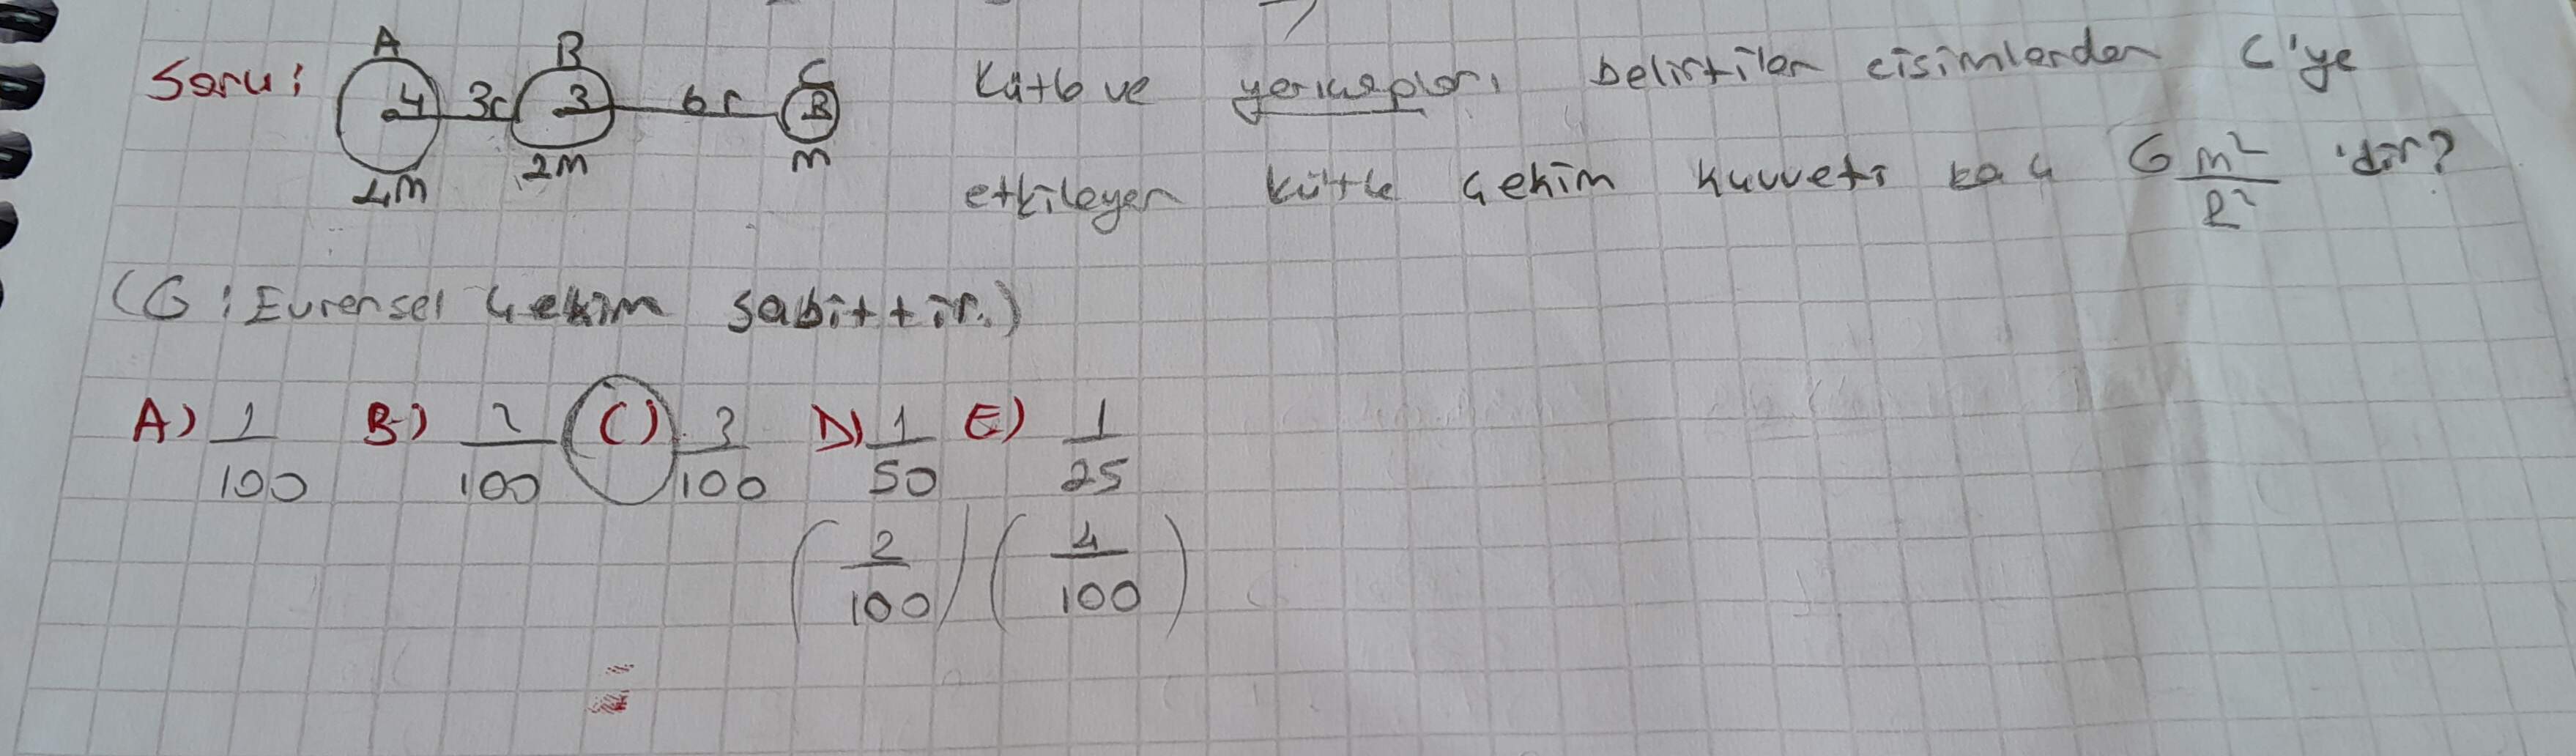 A B C
Soru: 4 3r 3 6r
4m 2m m
Kütle ve belirtilen cisimlerden C'ye
etkileyen kütle çekim kuvveti kaç G m²/R² 'dir?
(G: Evrensel çekim sabittir.)
A) 1/100 B) 2/100 C) 3/100 D) 1/50 E) 1/25
(2/100) (4/100)